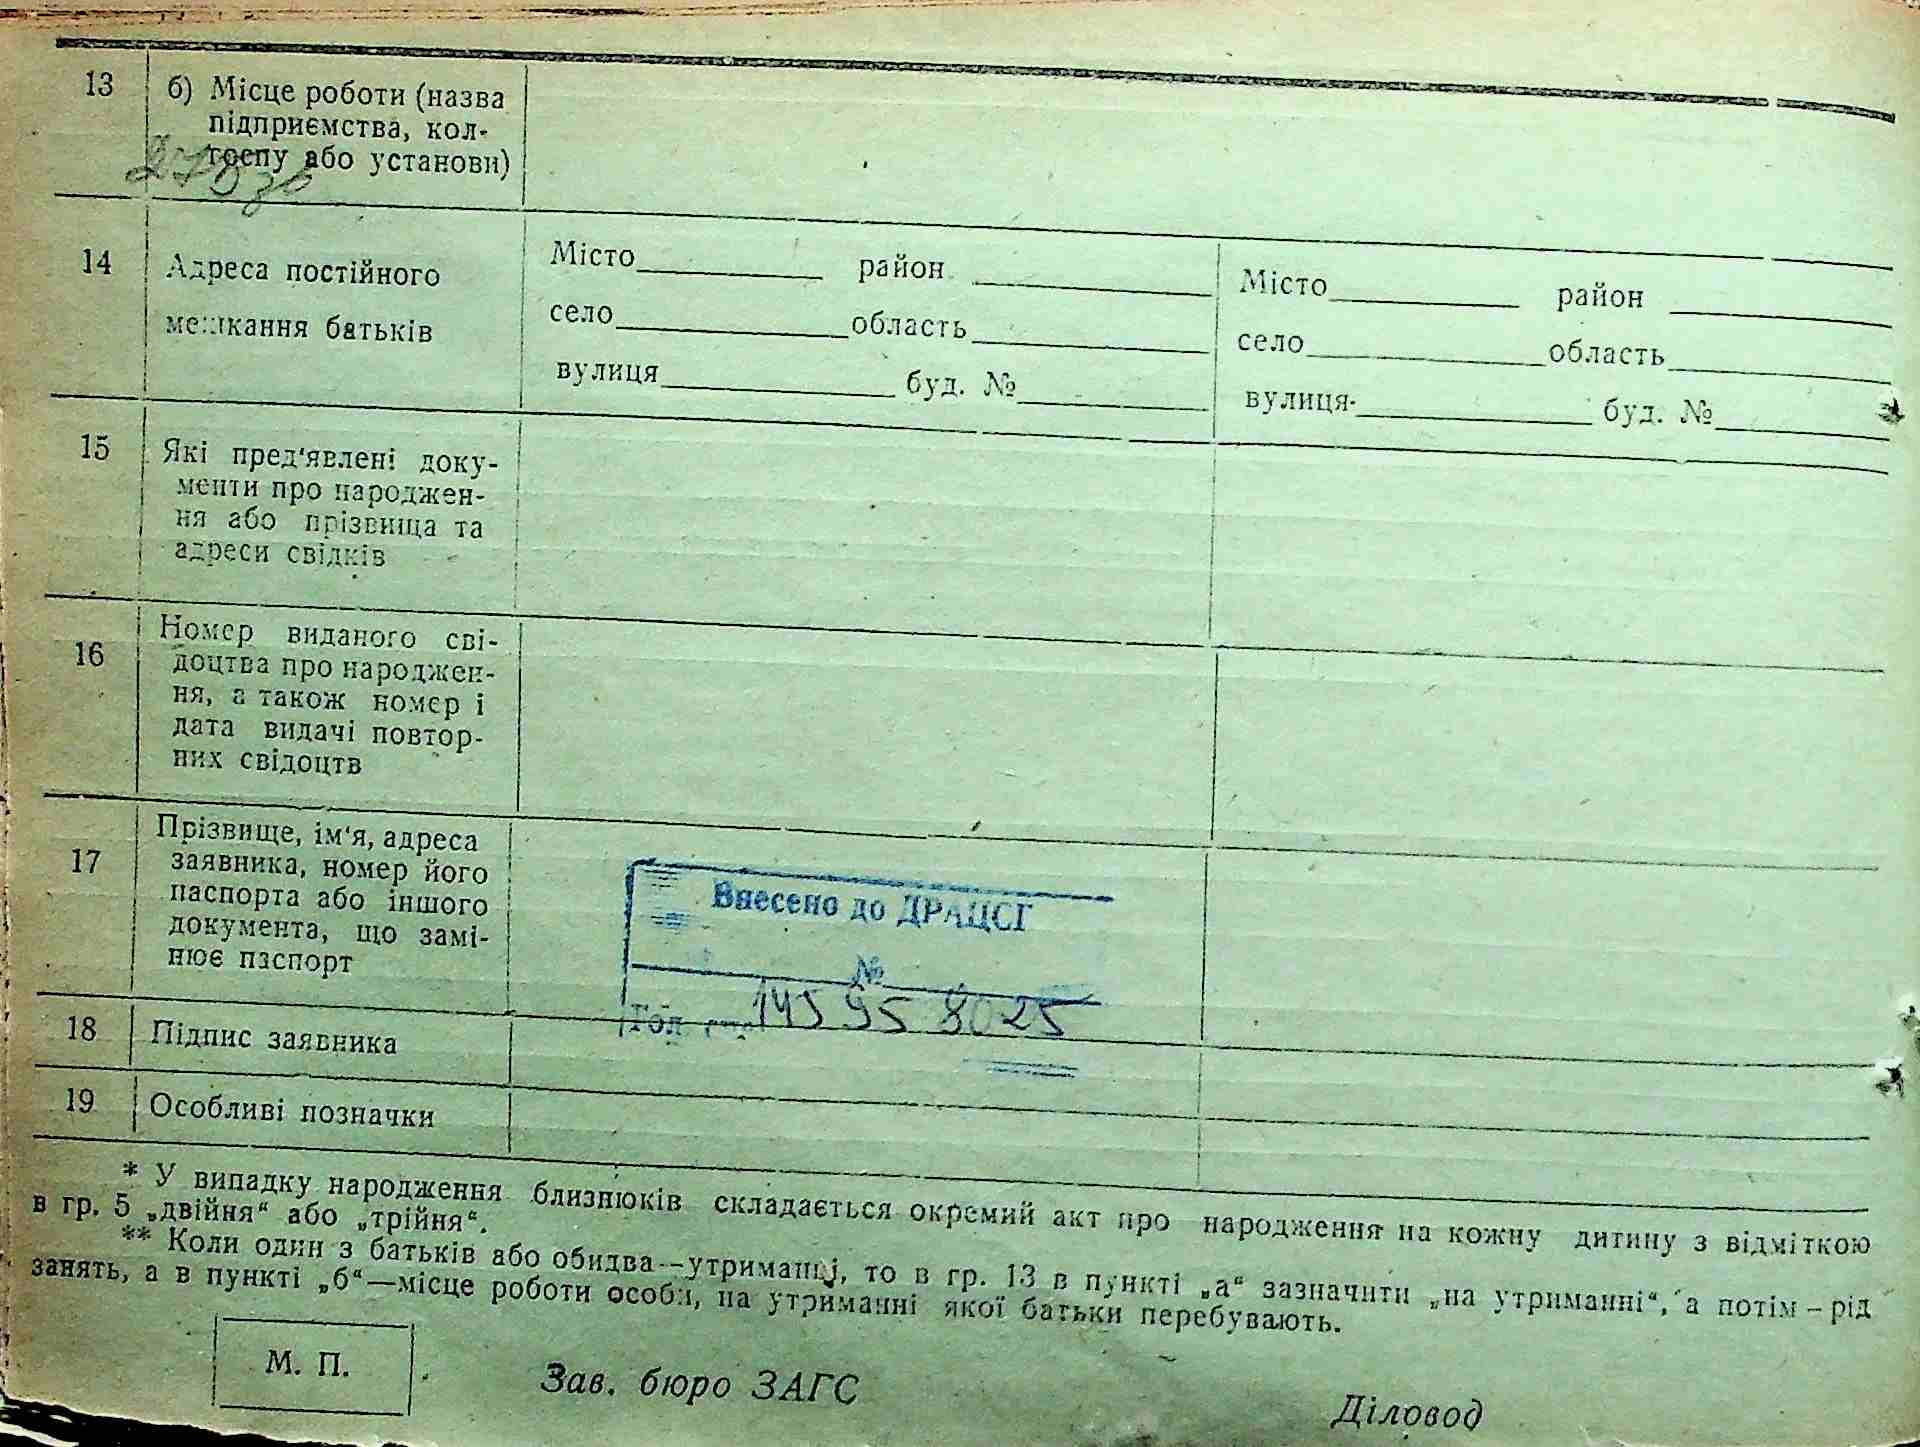 13 б) Місце роботи (назва
підприємства, кол-
госпу або установи)
14 Адреса постійного
мешкання батьків
Місто район
село область
вулиця буд. №
Місто район
село область
вулиця буд. №
15 Які пред'явлені доку-
менти про народжен-
ня або прізвища та
адреси свідків
16 Номер виданого сві-
доцтва про народжен-
ня, а також номер і
дата видачі повтор-
них свідоцтв
17 Прізвище, ім'я, адреса
заявника, номер його
паспорта або іншого
документа, що замі-
нює паспорт
Внесено до ДРАЦСГ
№
14595 8025
18 Підпис заявника
19 Особливі позначки
* У випадку народження близнюків складається окремий акт про народження на кожну дитину з відміткою
в гр. 5 „двійня“ або „трійня“.
** Коли один з батьків або обидва—утриманці, то в гр. 13 в пункті „а“ зазначити „на утриманні“, а потім – рід
занять, а в пункті „б“—місце роботи особи, на утриманні якої батьки перебувають.
М. П.
Зав. бюро ЗАГС
Діловод